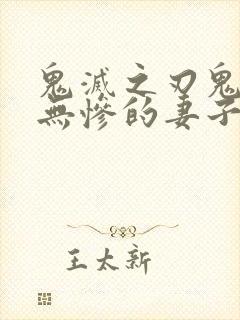 鬼滅之刃鬼
無慘的妻子
王太新